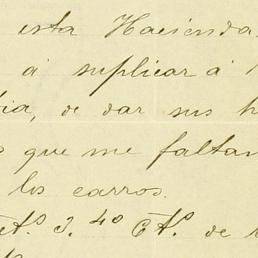 esta Hacienda
á suplicar á
de dar sus
que me faltan
los carros.
3. 4º Ctº. de